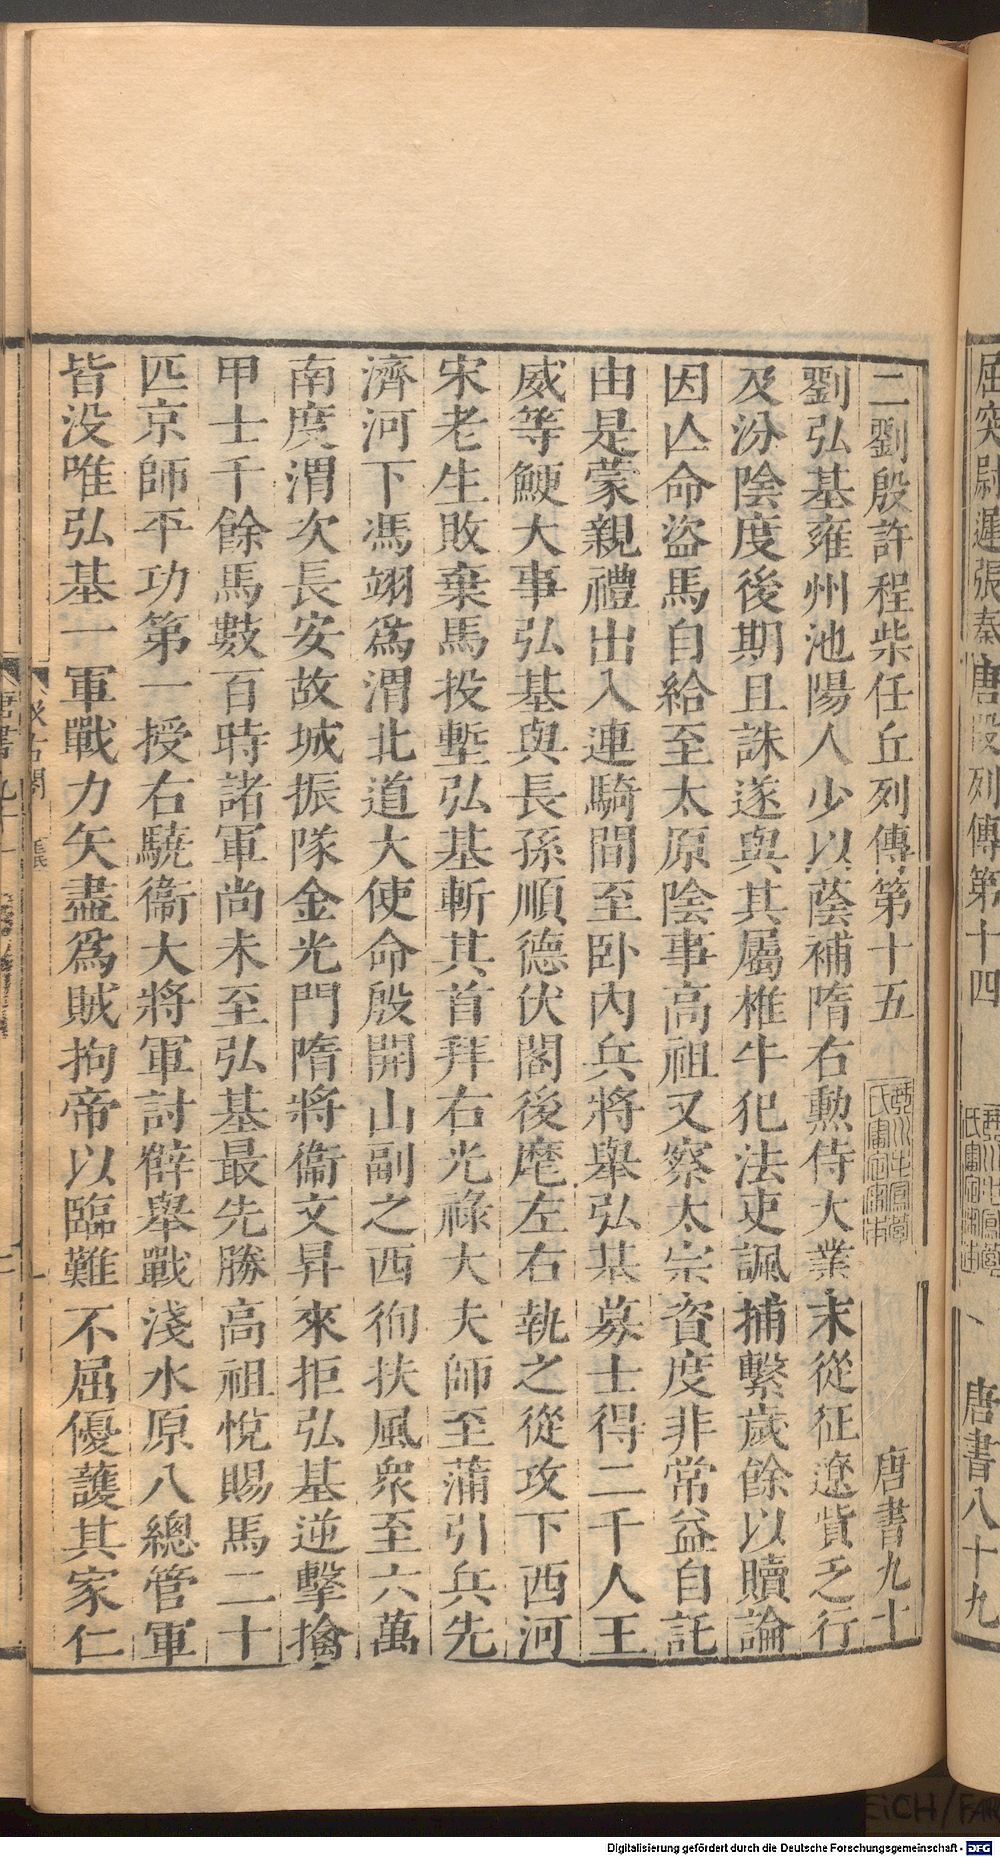 屈突尉遲張秦唐段列傳第十四
唐書八十九
二劉殷許程柴任丘列傳第十五
唐書九十
劉弘基雍州池陽人少以蔭補隋右勲侍大業末從征遼貲乏行
及汾陰度後期且誅遂與其屬椎牛犯法吏諷捕繫歲餘以贖論
因亾命盜馬自給至太原陰事高祖又察太宗資度非常益自託
由是蒙親禮出入連騎間至卧內兵將舉弘基募士得二千人王
威等鯁大事弘基與長孫順德伏閤後麾左右執之從攻下西河
宋老生敗棄馬投塹弘基斬其首拜右光祿大夫師至蒲引兵先
濟河下馮翊爲渭北道大使命殷開山副之西徇扶風衆至六萬
南度渭次長安故城振隊金光門隋將衞文昇來拒弘基逆擊擒
甲士千餘馬數百時諸軍尚未至弘基最先勝高祖悅賜馬二十
匹京師平功第一授右驍衞大將軍討薛舉戰淺水原八總管軍
皆没唯弘基一軍戰力矢盡爲賊拘帝以臨難不屈優護其家仁
Digitalisierung gefördert durch die Deutsche Forschungsgemeinschaft - DFG